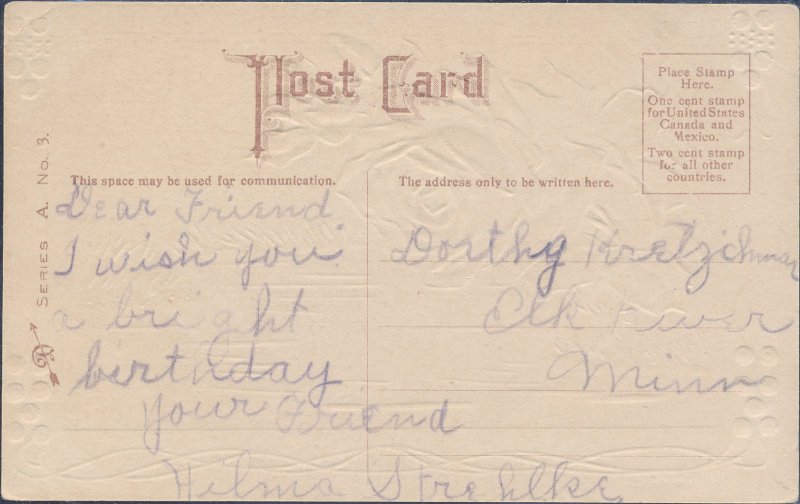 Post Card
Place Stamp
Here.
One cent stamp
for United States
Canada and
Mexico.
Two cent stamp
for all other
countries.
This space may be used for communication.
The address only to be written here.
SERIES A. No. 3.
Dear Friend
I wish you
a bright
birthday
Your Friend
Hilma Strehlke
Dorthy Kretzchmar
Elk River
Minn